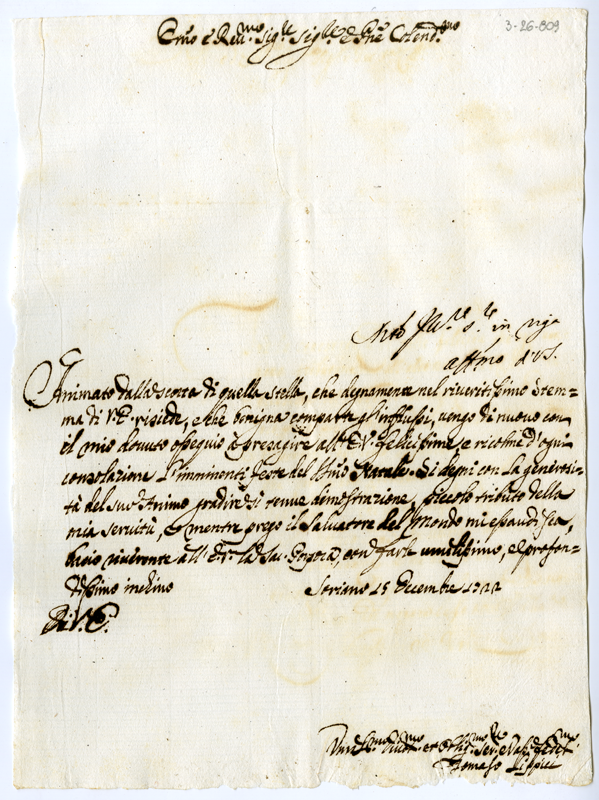 3-26-809
Emo e Reu.mo Sig.re Sig.re e Pne Colend.mo
in
Animato dalla scorta di quella stella, che degnamente nel riueritissimo stem=
ma di V.E. risiede, e che benigna comparte gl'influssi, uengo di nuouo con
il mio douuto ossequio à presagire all' E.V. felicissime, e ricolme d'ogni
consolazione l'imminenti feste del Natale. Si degni con la generosi=
tà del suo Animo gradire si tenue demostrazione, piccolo tributo della
mia seruitù, e mentre prego il Saluatore del Mondo mi essaudisca,
bacio riuerente all' E.V. la Sac. Porpora, con farle umilissimo, e profon=
dissimo inchino Soriano 15 Decembre 1722
Di V.E.
Tomaso Lippici